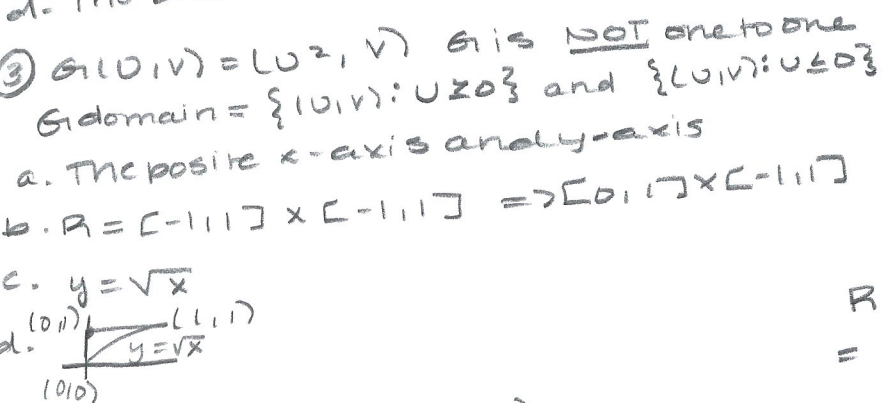 ③ G(U,V) = (U², V) G is NOT one to one
G domain = {(U,V): U≥0} and {(U,V): U≤0}
a. The posite x-axis and y-axis
b. R = [-1,1] × [-1,1] => [0,1] × [-1,1]
c. y = √x
R
(0,1) (1,1)
d. y = √x
=
(0,0)